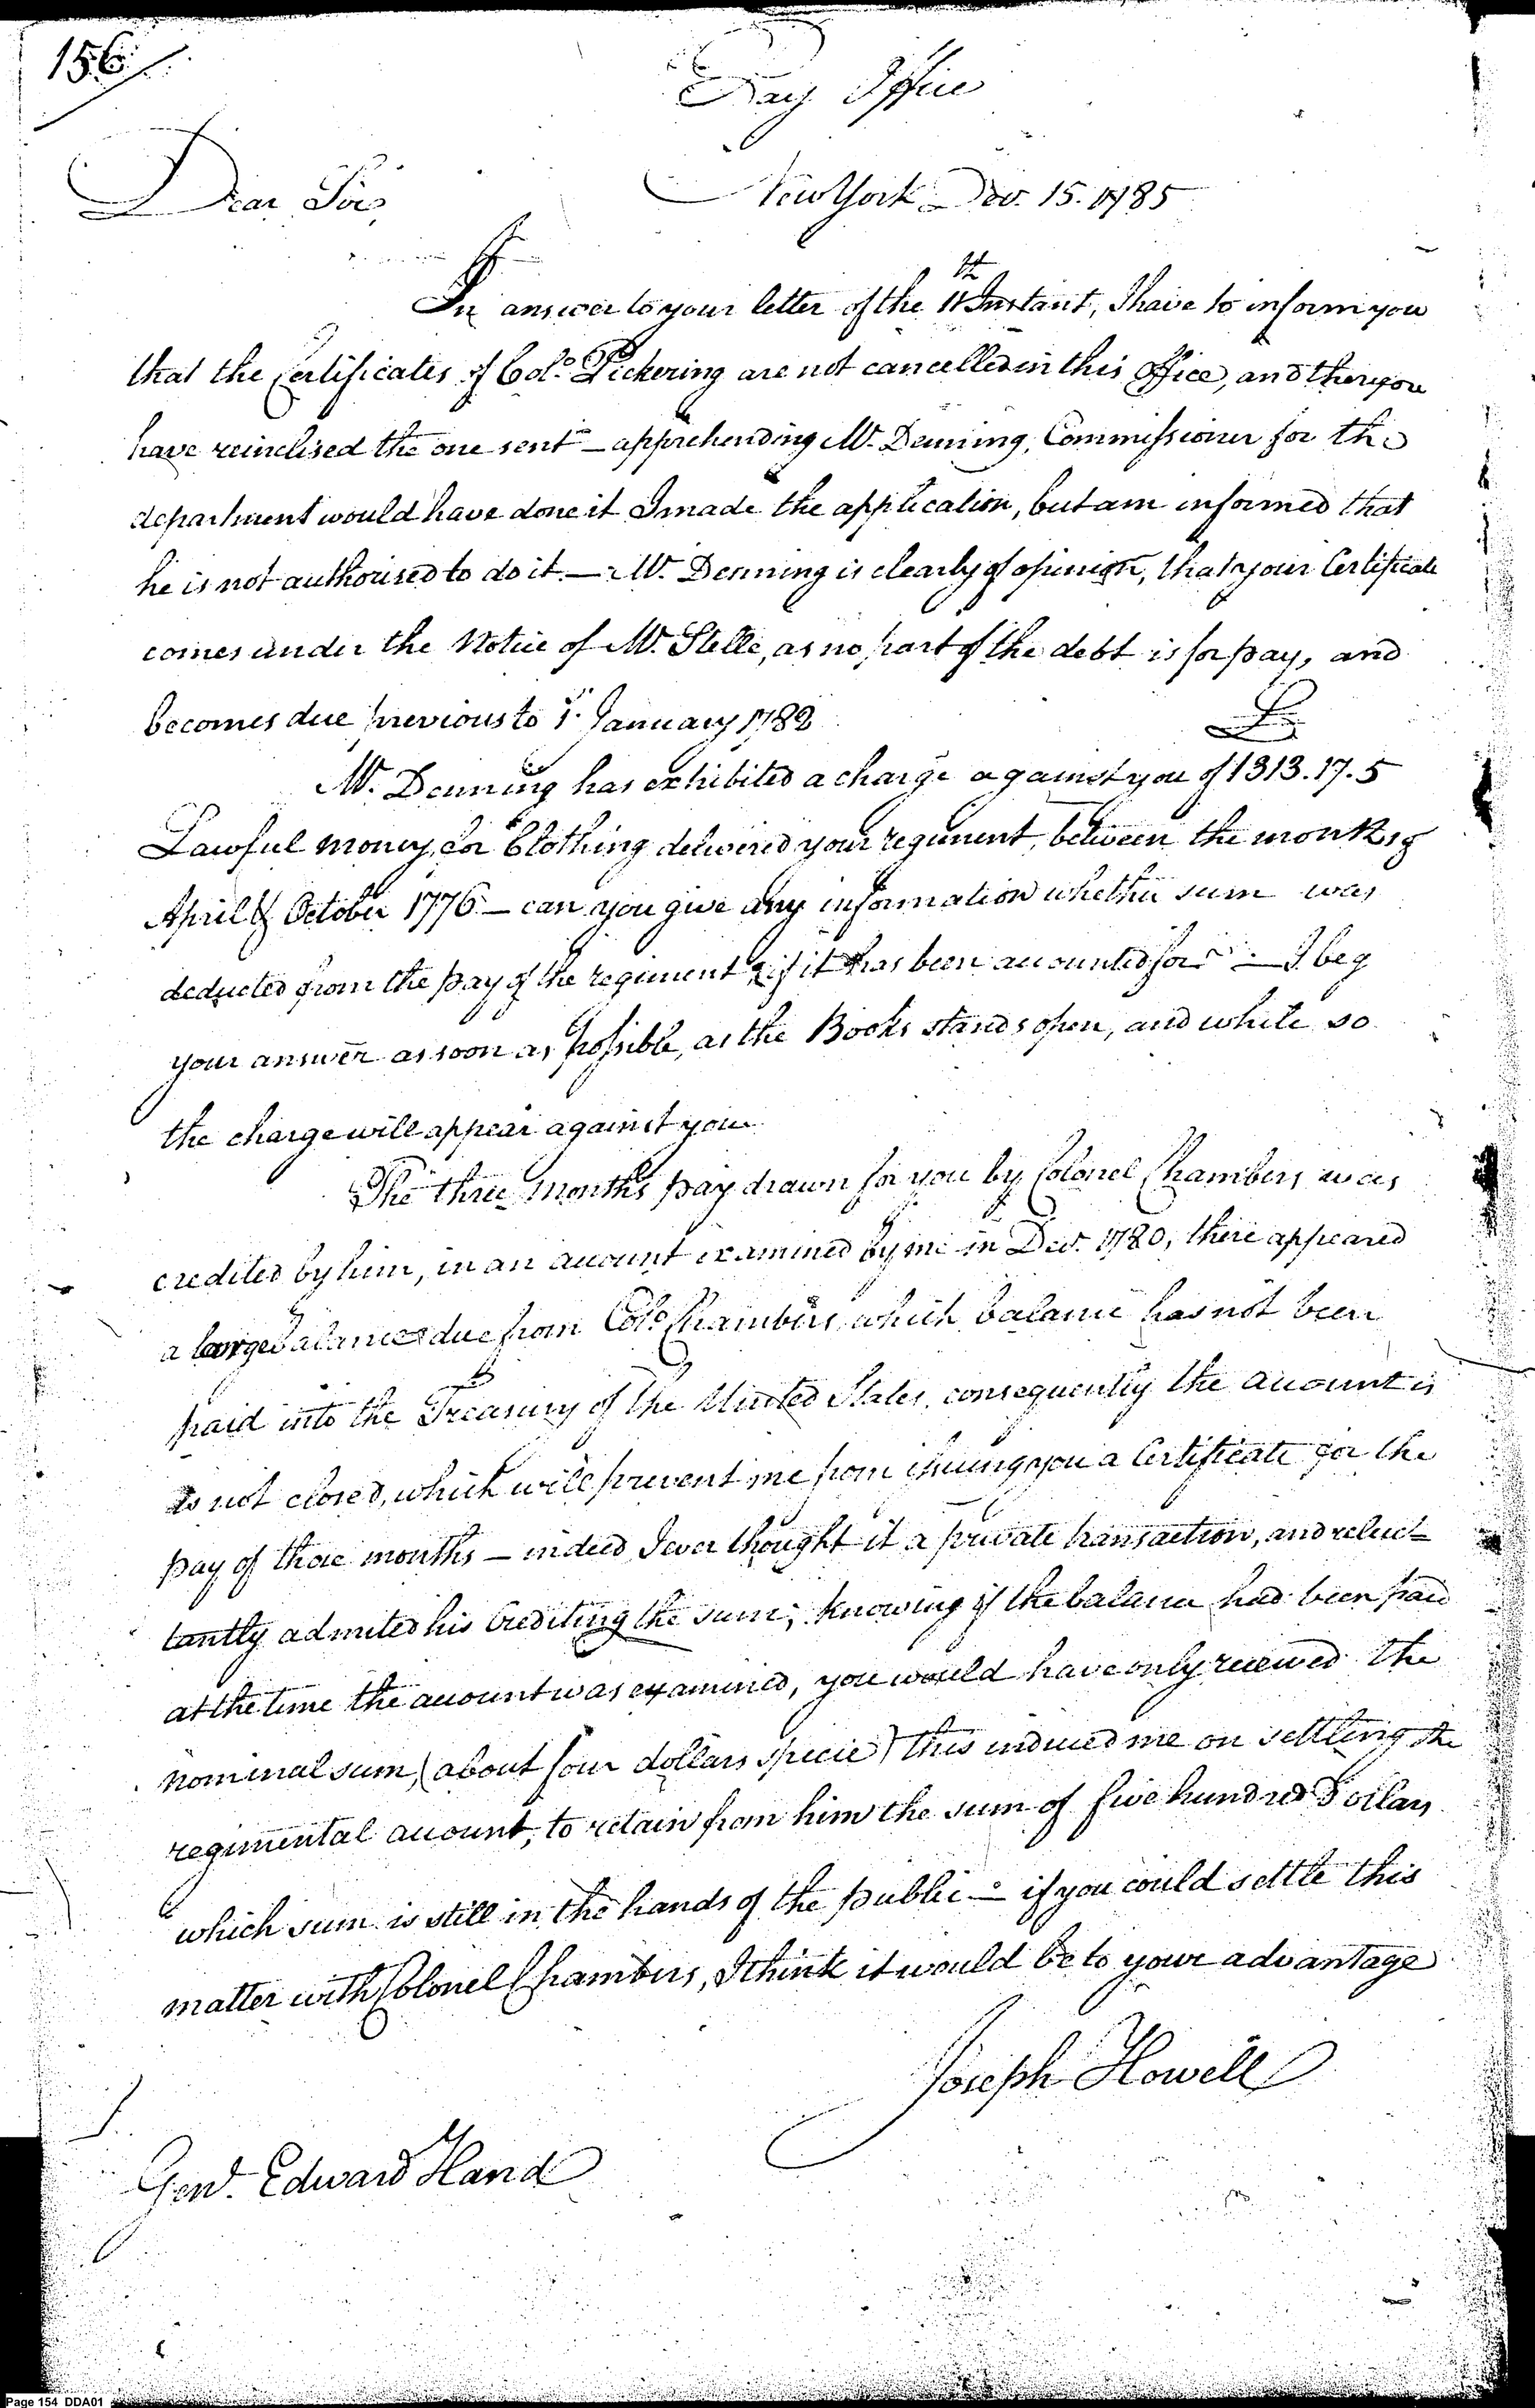 156
Pay Office
Dear Sir, New York Dec. 15. 1785
In answer to your letter of the 11th Instant, I have to inform you
that the Certificates of Colo. Pickering are not cancelled in this Office, and therefore
have reinclised the one sent — apprehending Mr. Denning, Commissioner for the
department would have done it I made the application, but am informed that
he is not authorised to do it. — Mr. Denning is clearly of opinion, that your Certificate
comes under the Notice of Mr. Stelle, as no part of the debt is for pay, and
becomes due previous to 1st January 1782
£
Mr. Denning has exhibited a charge against you of 1313.17.5
Lawful money, for Clothing delivered your regiment, between the months of
April & October 1776 — can you give any information whether sum was
deducted from the pay of the regiment & if it has been accounted for — I beg
your answer as soon as possible, as the Books stands open, and while so
the charge will appear against you
The three months pay drawn for you by Colonel Chambers was
credited by him, in an account examined by me in Decr. 1780, there appeared
a large balance due from Colo. Chambers which balance has not been
paid into the Treasury of the United States, consequently the account is
is not closed, which will prevent me from issuing you a Certificate for the
pay of those months — indeed I ever thought it a private transaction, and reluc=
tantly admited his Crediting the sum; knowing if the balance had been paid
at the time the account was examined, you would have only received the
nominal sum, (about four dollars specie) this induced me on settling the
regimental account, to retain from him the sum of five hundred Dollars
which sum is still in the hands of the public — if you could settle this
matter with Colonel Chambers, I think it would be to your advantage
Joseph Howell
Genl. Edward Hand
Page 154 DDA01